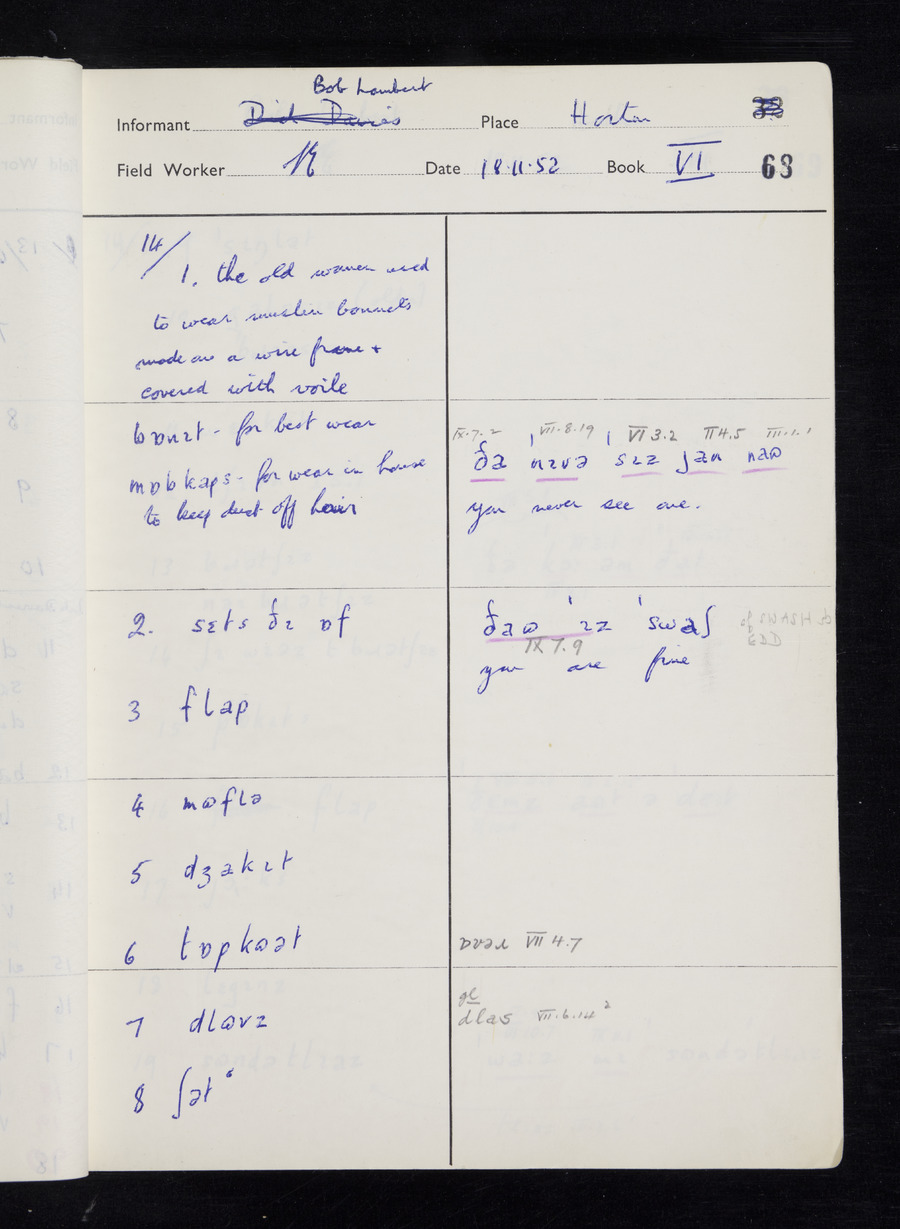 Bob Lambert
Informant Dick Davies Place Horton
Field Worker Date 18.11.52 Book VI 63
14/
1. the old women used
to wear muslin bonnets
made on a wire frame +
covered with voile
bɒnɪt - for best wear
mɒbkaps - for wear in house
to keep dust off hair
IX.7.2 VII.8.19 VI 3.2 II 4.5 III.1.1
ðə nɛvə sɪz jan naɷ
you never see one.
2. sɛts ðɪ ɒf
you are fine
IX 7.9
3 flap
4 mɷflə
5 dʒakɪt
6 tɒpkɷət
ɒvəɹ VII 4.7
7 dlɷvz
gl
dlas VII.6.14 2
8 ʃət